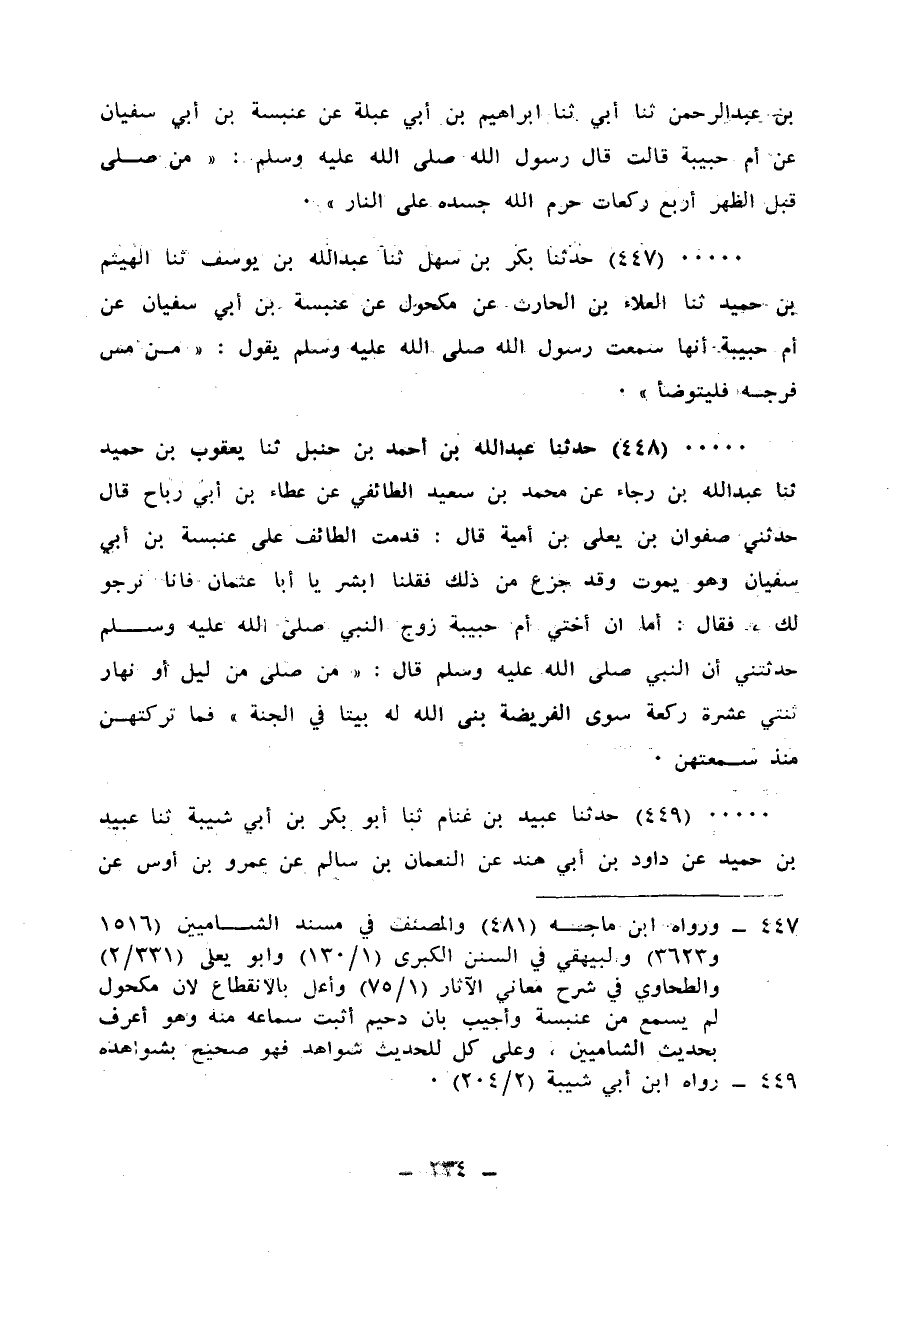 بن عبدالرحمن ثنا أبي ثنا ابراهيم بن أبي عبلة عن عنبسة بن أبي سفيان
عن أم حبيبة قالت قال رسول الله صلى الله عليه وسلم : « من صلى
قبل الظهر أربع ركعات حرم الله جسده على النار » ٠
٠٠٠٠٠ (٤٤٧) حدثنا بكر بن سهل ثنا عبدالله بن يوسف ثنا الهيثم
بن حميد ثنا العلاء بن الحارث عن مكحول عن عنبسة بن أبي سفيان عن
أم حبيبة أنها سمعت رسول الله صلى الله عليه وسلم يقول : « من مس
فرجه فليتوضأ » ٠
٠٠٠٠٠ (٤٤٨) حدثنا عبدالله بن أحمد بن حنبل ثنا يعقوب بن حميد
ثنا عبدالله بن رجاء عن محمد بن سعيد الطائفي عن عطاء بن أبي رباح قال
حدثني صفوان بن يعلى بن أمية قال : قدمت الطائف على عنبسة بن أبي
سفيان وهو يموت وقد جزع من ذلك فقلنا ابشر يا أبا عثمان فانا نرجو
لك ، فقال : أما ان أختي أم حبيبة زوج النبي صلى الله عليه وسلم
حدثتني أن النبي صلى الله عليه وسلم قال : « من صلى من ليل أو نهار
ثنتي عشرة ركعة سوى الفريضة بنى الله له بيتا في الجنة » فما تركتهن
منذ سمعتهن ٠
٠٠٠٠٠ (٤٤٩) حدثنا عبيد بن غنام ثنا أبو بكر بن أبي شيبة ثنا عبيد
بن حميد عن داود بن أبي هند عن النعمان بن سالم عن عمرو بن أوس عن
٤٤٧ ـ ورواه ابن ماجه (٤٨١) والمصنف في مسند الشاميين (١٥١٦
و٣٦٢٣) والبيهقي في السنن الكبرى (١٣٠/١) وابو يعلى (٢/٣٣١)
والطحاوي في شرح معاني الآثار (٧٥/١) وأعل بالانقطاع لان مكحول
لم يسمع من عنبسة وأجيب بان دحيم أثبت سماعه منه وهو أعرف
بحديث الشاميين ، وعلى كل للحديث شواهد فهو صحيح بشواهده
٤٤٩ ـ رواه ابن أبي شيبة (٢٠٤/٢) ٠
ـ ٢٣٤ ـ